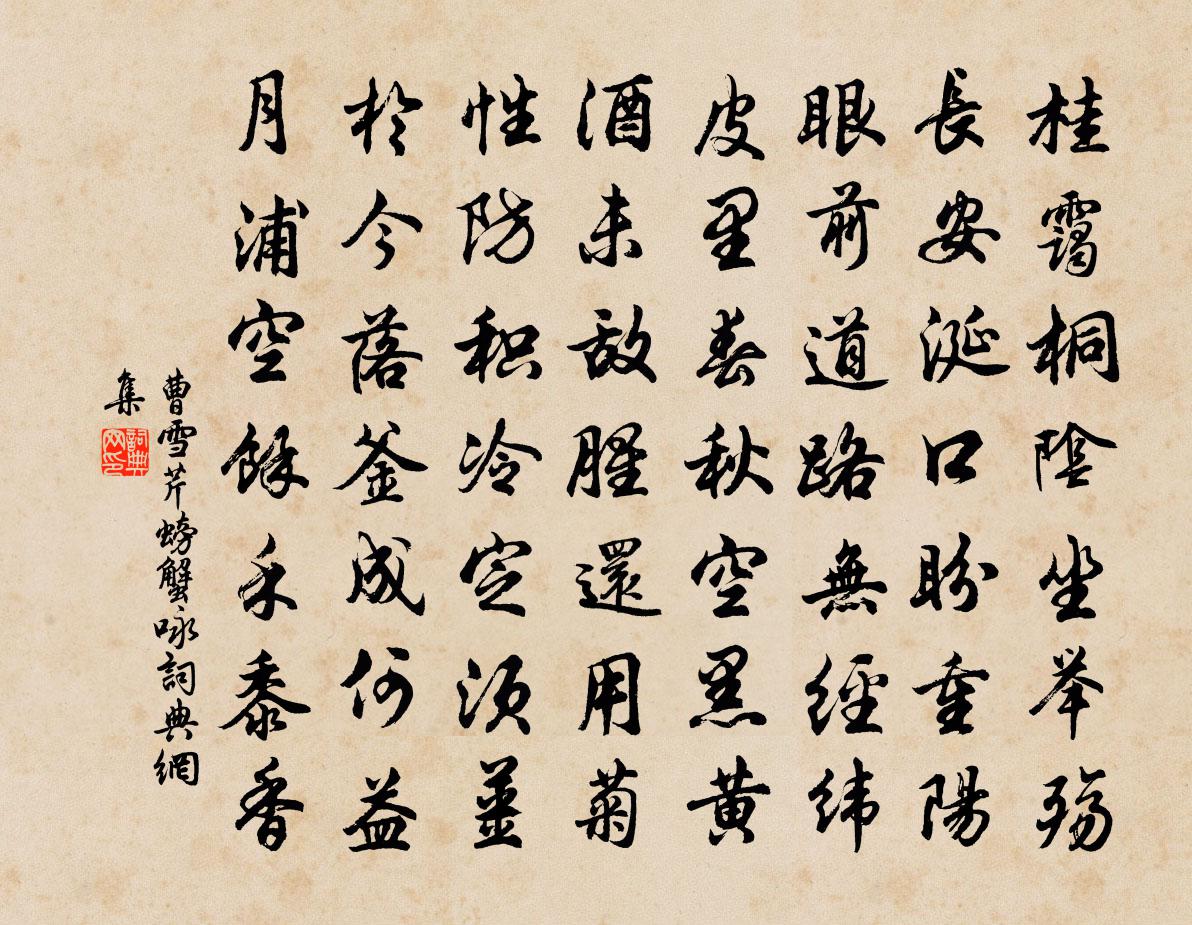 桂靄桐陰坐举殇
長安涎口盼重陽
眼前道路無經緯
皮里春秋空黑黄
酒未敌腥還用菊
性防积冷定須薑
於今落釜成何益
月浦空餘禾黍香
曹雪芹螃蟹咏詞典網
集
詞典
网印